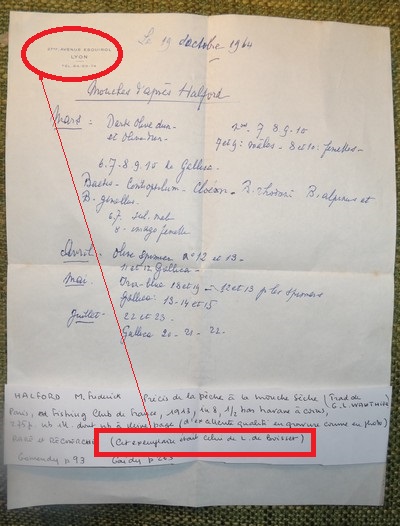 AVENUE ESQUIROL
LYON
Le 19 octobre 1964
Mouches d'après Halford
Mars : Dark Olive dun
et Olive dun
nos 7 8. 9. 10
7 et 9 : mâles - 8 et 10 : femelles -
6. 7. 8. 9. 10 de Gallica
Baetis - Centroptilum - Cloëon - B. rhodani B. alpinus et
B. gemellus
6. 7. sub.
8 - imago femelle
Avril - Olive Spinner n° 12 et 13 -
11 et 12 Gallica -
Mai : Iron-blue 18 et 19 - 12 et 13 p. les spinners
Gallica : 13 - 14 et 15
Juillet - 22 et 23 -
Gallica 20 - 21 - 22 -
HALFORD M. Frederick Précis de la pêche à la mouche sèche (Trad de
G. L. WAUTHIER
Paris, ed Fishing Club de France, 1913, in 8, 1/2 bas havane à coins,
ill. dont pleine page (d'excellente qualité en gravure comme en photo)
RARE et RECHERCHE (Cet exemplaire était celui de L. de Boisset)
p 93 p 263